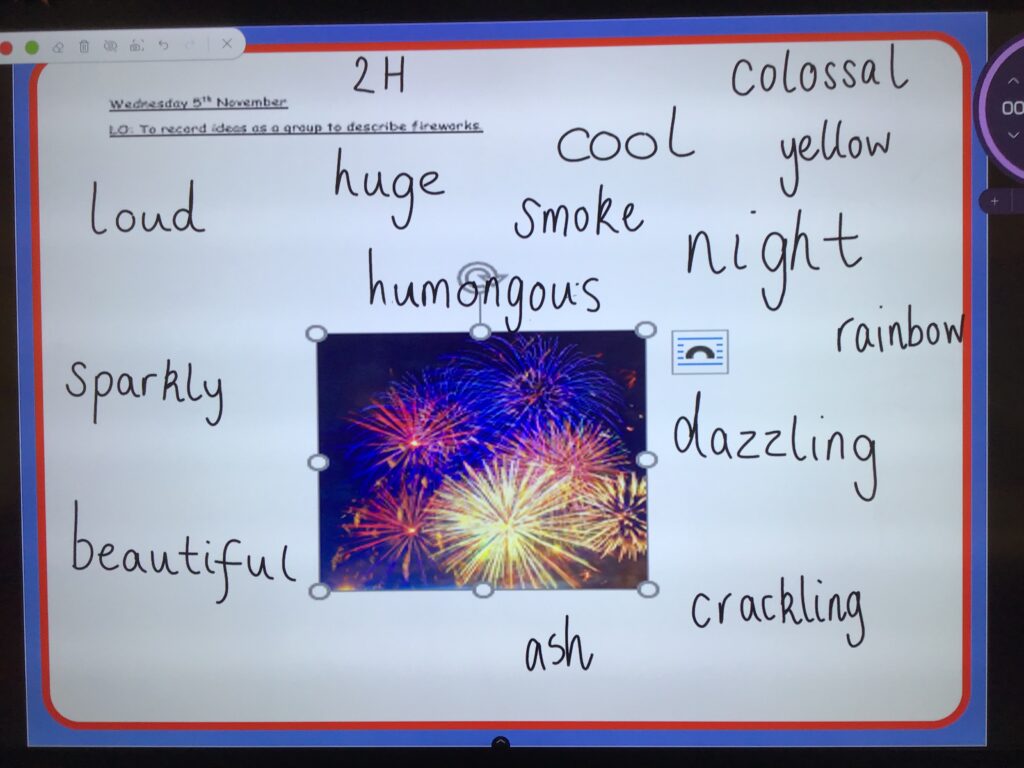 2H
colossal
Wednesday 5th November
LO: To record ideas as a group to describe fireworks.
cool
yellow
huge
loud
smoke
night
humongous
rainbow
sparkly
dazzling
beautiful
crackling
ash
00